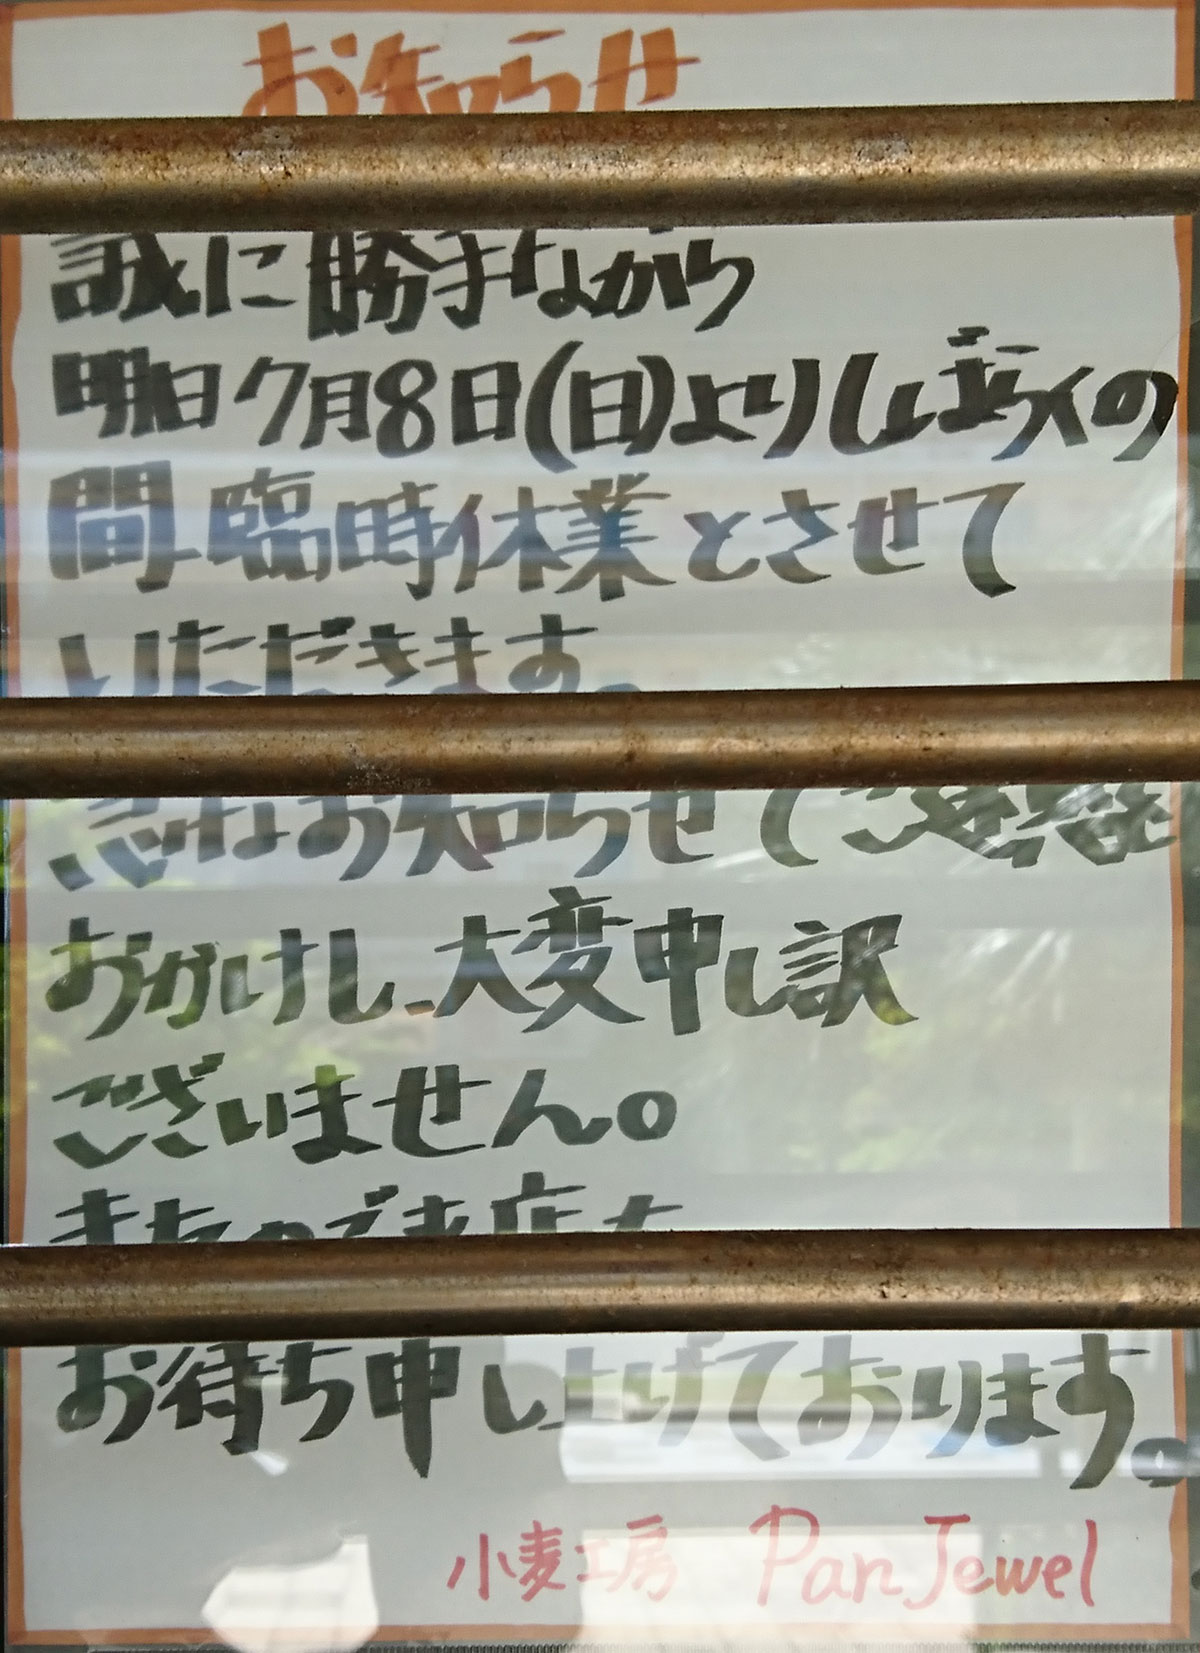 お知らせ
誠に勝手ながら
明日7月8日(日)よりしばらくの
間臨時休業とさせて
いただきます。
急なお知らせでご迷惑
おかけし、大変申し訳
ございません。
またのご来店を
お待ち申し上げております。
小麦工房 Pan Jewel